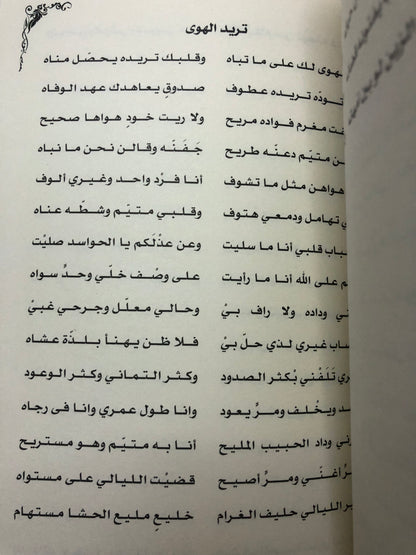 تريد الهوى
لهوى لك على ما تباه وقلبك تريده يحصّل مناه
تودّه تريده عطوف صدوقٍ يعاهدك عهد الوفاه
مغرم فواده مريح ولا ريت خودٍ هواها صحيح
من متيّم دعنّه طريح جَفَنّه وقالن نحن ما نباه
هواهن مثل ما تشوف أنا فرْد واحد وغيري ألوف
تهامل ودمعي هتوف وقلبي متيّم وشطّه عناه
باب قلبي أنا ما سليت وعن عذْلكم يا الحواسد صليْت
م على الله أنا ما رأيت على وصْف خلّي وحدٍّ سواه
ني وداده ولا راف بيْ وحالي معلّل وجرحي غبيْ
ساب غيري لذي حلّ بيْ فلا ظن يهنأ بلذّة عشاه
ري تَلَفْني بْكثر الصدود وكثر التماني وكثر الوعود
د ويخْلف ومرٍّ يعود وانا طول عمري وانا فى رجاه
وني وداد الحبيب المليح أنا به متيّم وهو مستريح
رٍّ اغنّي ومرٍّ أصيح قضيْت الليالي على مستواه
ير الليالي حليف الغرام خليعٍ مليع الحشا مستهام